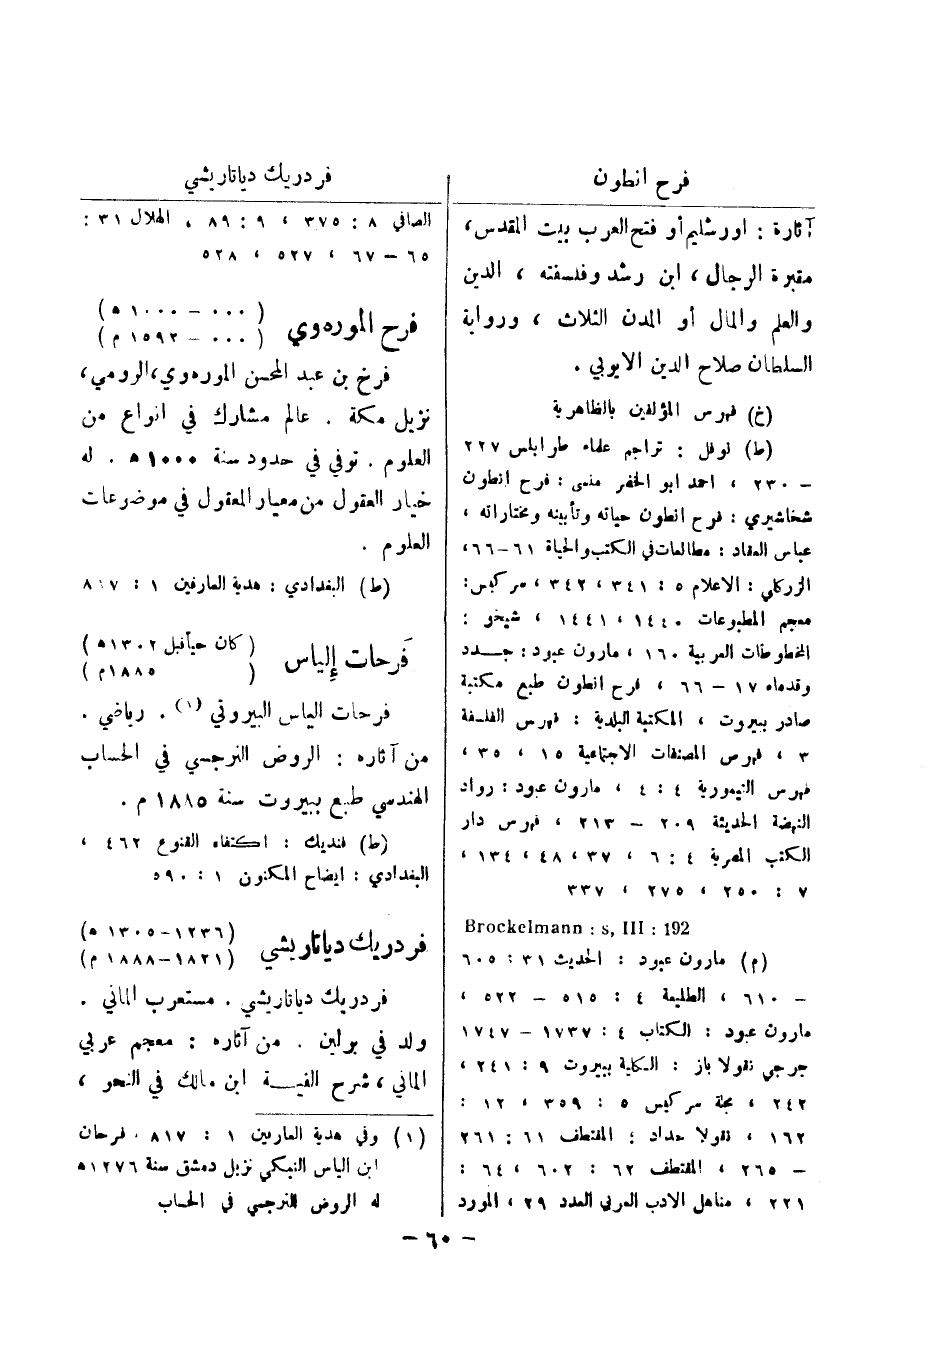 فرح انطون
آثاره : اورشليم أو فتح العرب بيت المقدس ،
مقبرة الرجال ، ابن رشد وفلسفته ، الدين
والعلم والمال أو المدن الثلاث ، ورواية
السلطان صلاح الدين الايوبي .
(خ) فهرس المؤلفين بالظاهرية
(ط) نوفل : تراجم علماء طرابلس ٢٢٧
– ٢٣٠ ، احمد ابو الخضر منسى : فرح انطون
شخاشيري : فرح انطون حياته وتأبينه ومختاراته ،
عباس العقاد : مطالعات في الكتب والحياة ٦١–٦٦،
الزركلي : الاعلام ٥ : ٣٤١ ، ٣٤٢ ، سركيس:
معجم المطبوعات ١٤٤٠ ، ١٤٤١ ، شيخو :
المخطوطات العربية ١٦٠ ، مارون عبود : جـدد
وقدماء ١٧ – ٦٦ ، فرح انطون طبع مكتبة
صادر ببيروت ، المكتبة البلدية : فهرس الفلسفة
٣ ، فهرس المصنفات الاجتماعية ١٥ ، ٣٥ ،
فهرس التيمورية ٤ : ٤ ، مارون عبود : رواد
النهضة الحديثة ٢٠٩ – ٢١٣ ، فهرس دار
الكتب المصرية ٤ : ٦ ، ٣٧ ، ٤٨ ، ١٣٤ ،
٧ : ٢٥٠ ، ٢٧٥ ، ٣٣٧
Brockelmann : s, III : 192
(م) مارون عبود : الحديث ٣١ : ٦٠٥
– ٦١٠ ، الطليعة ٤ : ٥١٥ – ٥٢٢ ،
مارون عبود : الكتاب ٤ : ١٧٣٧ – ١٧٤٧
جرجي نقولا باز : الكلية ببيروت ٩ : ٢٤١ ،
٢٤٢ ، مجلة سركيس ٥ : ٣٥٩ ، ١٢ :
١٦٢ ، نقولا حداد : المقتطف ٦١ : ٢٦١
– ٢٦٥ ، المقتطف ٦٢ : ٦٠٢ ، ٦٤ :
٢٢١ ، مناهل الادب العربي العدد ٢٩ ، المورد
فردريك دياتاريشي
الصافي ٨ : ٣٧٥ ، ٩ : ٨٩ ، الهلال ٣١ :
٦٥ – ٦٧ ، ٥٢٧ ، ٥٢٨
فرح الموردوي (٠٠٠ – ١٠٠٠ ه)
(٠٠٠ – ١٥٩٢ م)
فرخ بن عبد المحسن الموردوي ، الرومي ،
نزيل مكة . عالم مشارك في انواع من
العلوم . توفي في حدود سنة ١٠٠٠ ه . له
خيار العقول من معيار المعقول في موضوعات
العلوم .
(ط) البغدادي : هدية العارفين ١ : ٨١٧
فرحات إلياس (كان حياً قبل ١٣٠٢ ه)
(١٨٨٥ م)
فرحات الياس البيروتي (١) . رياضي .
من آثاره : الروض النرجسي في الحساب
الهندسي طبع ببيروت سنة ١٨٨٥ م .
(ط) فنديك : اكتفاء القنوع ٤٦٢ ،
البغدادي : ايضاح المكنون ١ : ٥٩٠
فردريك دياتاريشي (١٢٣٦–١٣٠٥ ه)
(١٨٢١–١٨٨٨ م)
فردريك دياتاريشي . مستعرب الماني .
ولد في برلين . من آثاره : معجم عربي
الماني ، شرح الفيـة ابن مالك في النحو ،
(١) وفي هدية العارفين ١ : ٨١٧ . فرحان
ابن الياس النبكي نزيل دمشق سنة ١٢٧٦ ه
له الروض النرجسي في الحساب
– ٦٠ –